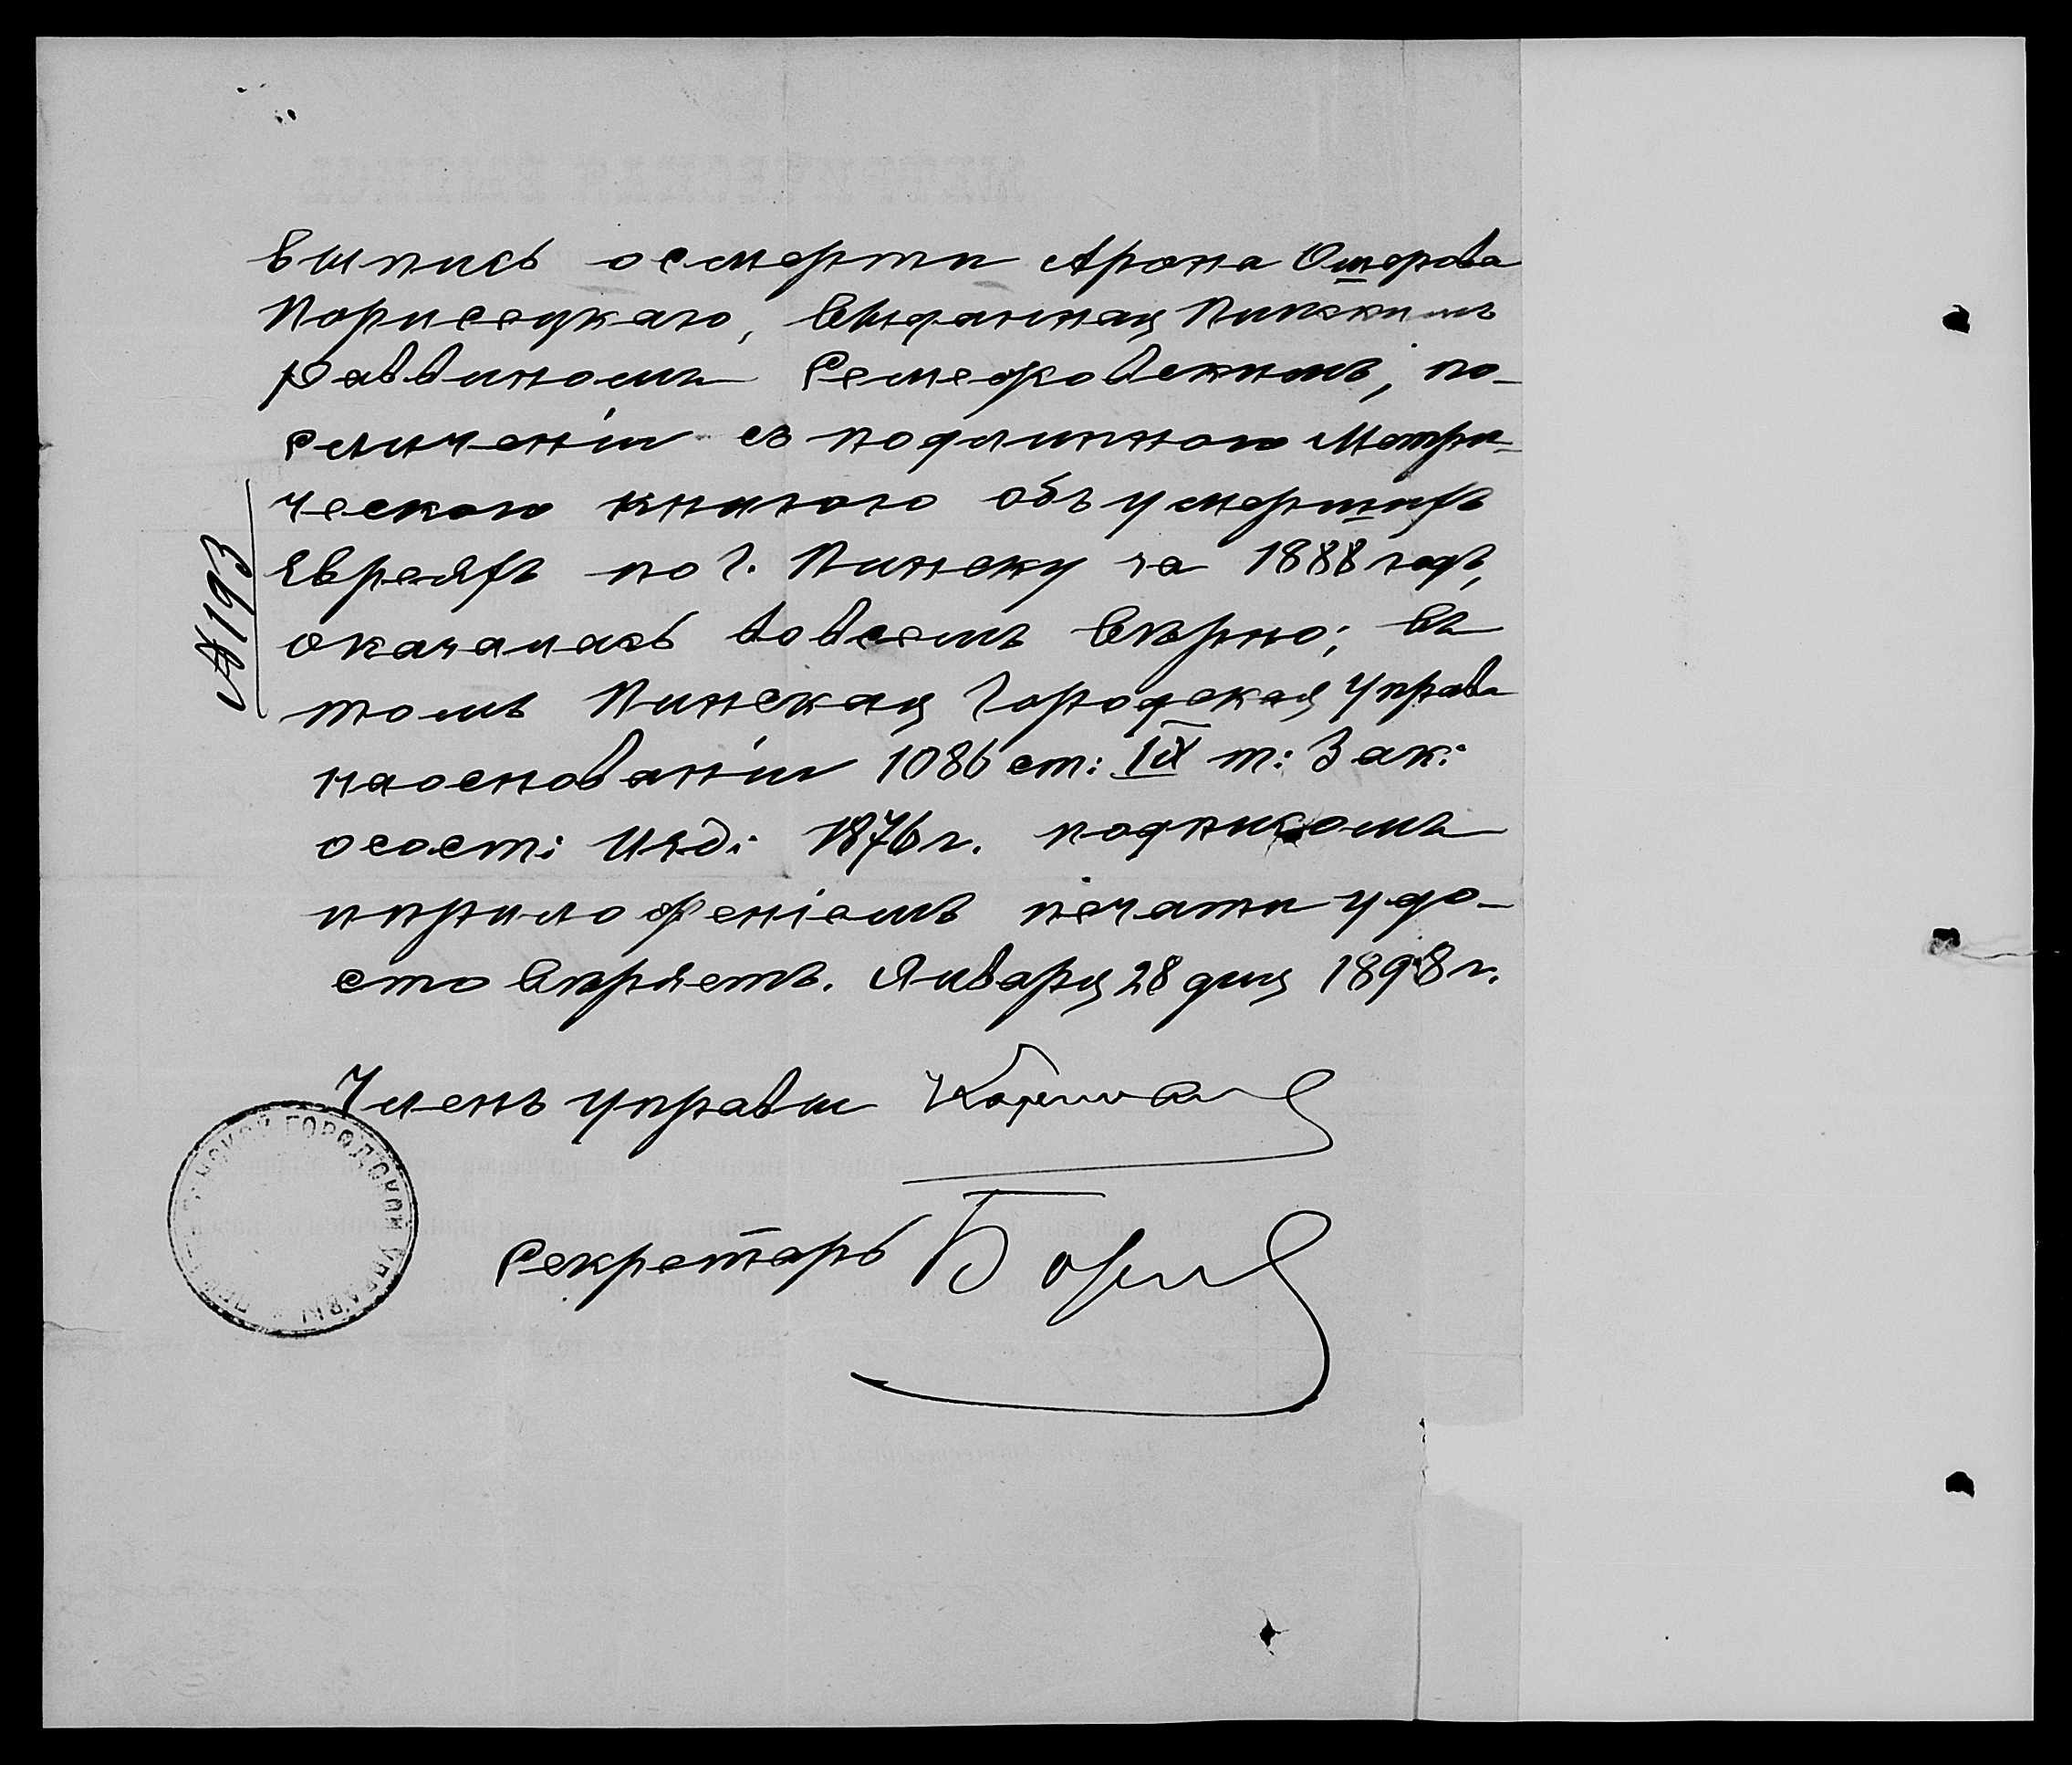 Выпись о смерти Арона Ошерова
Порисецкаго, выданная Пинскимъ
Раввиномъ Семежовскимъ, по
сличеніи съ подлинною Метри-
ческою книгою объ умершихъ
Евреяхъ по г. Пинску за 1888 годъ,
оказалась во всемъ вѣрно; въ
томъ Пинская Городская Управа
на основаніи 1086 ст: IX т: Зак:
о сост: изд: 1876 г. подписомъ
и приложеніемъ печати удо-
стовѣряетъ. Января 28 дня 1898 г.
№ 193
Членъ управы
Секретарь
ПИНСКОЙ ГОРОДСКОЙ УПРАВЫ